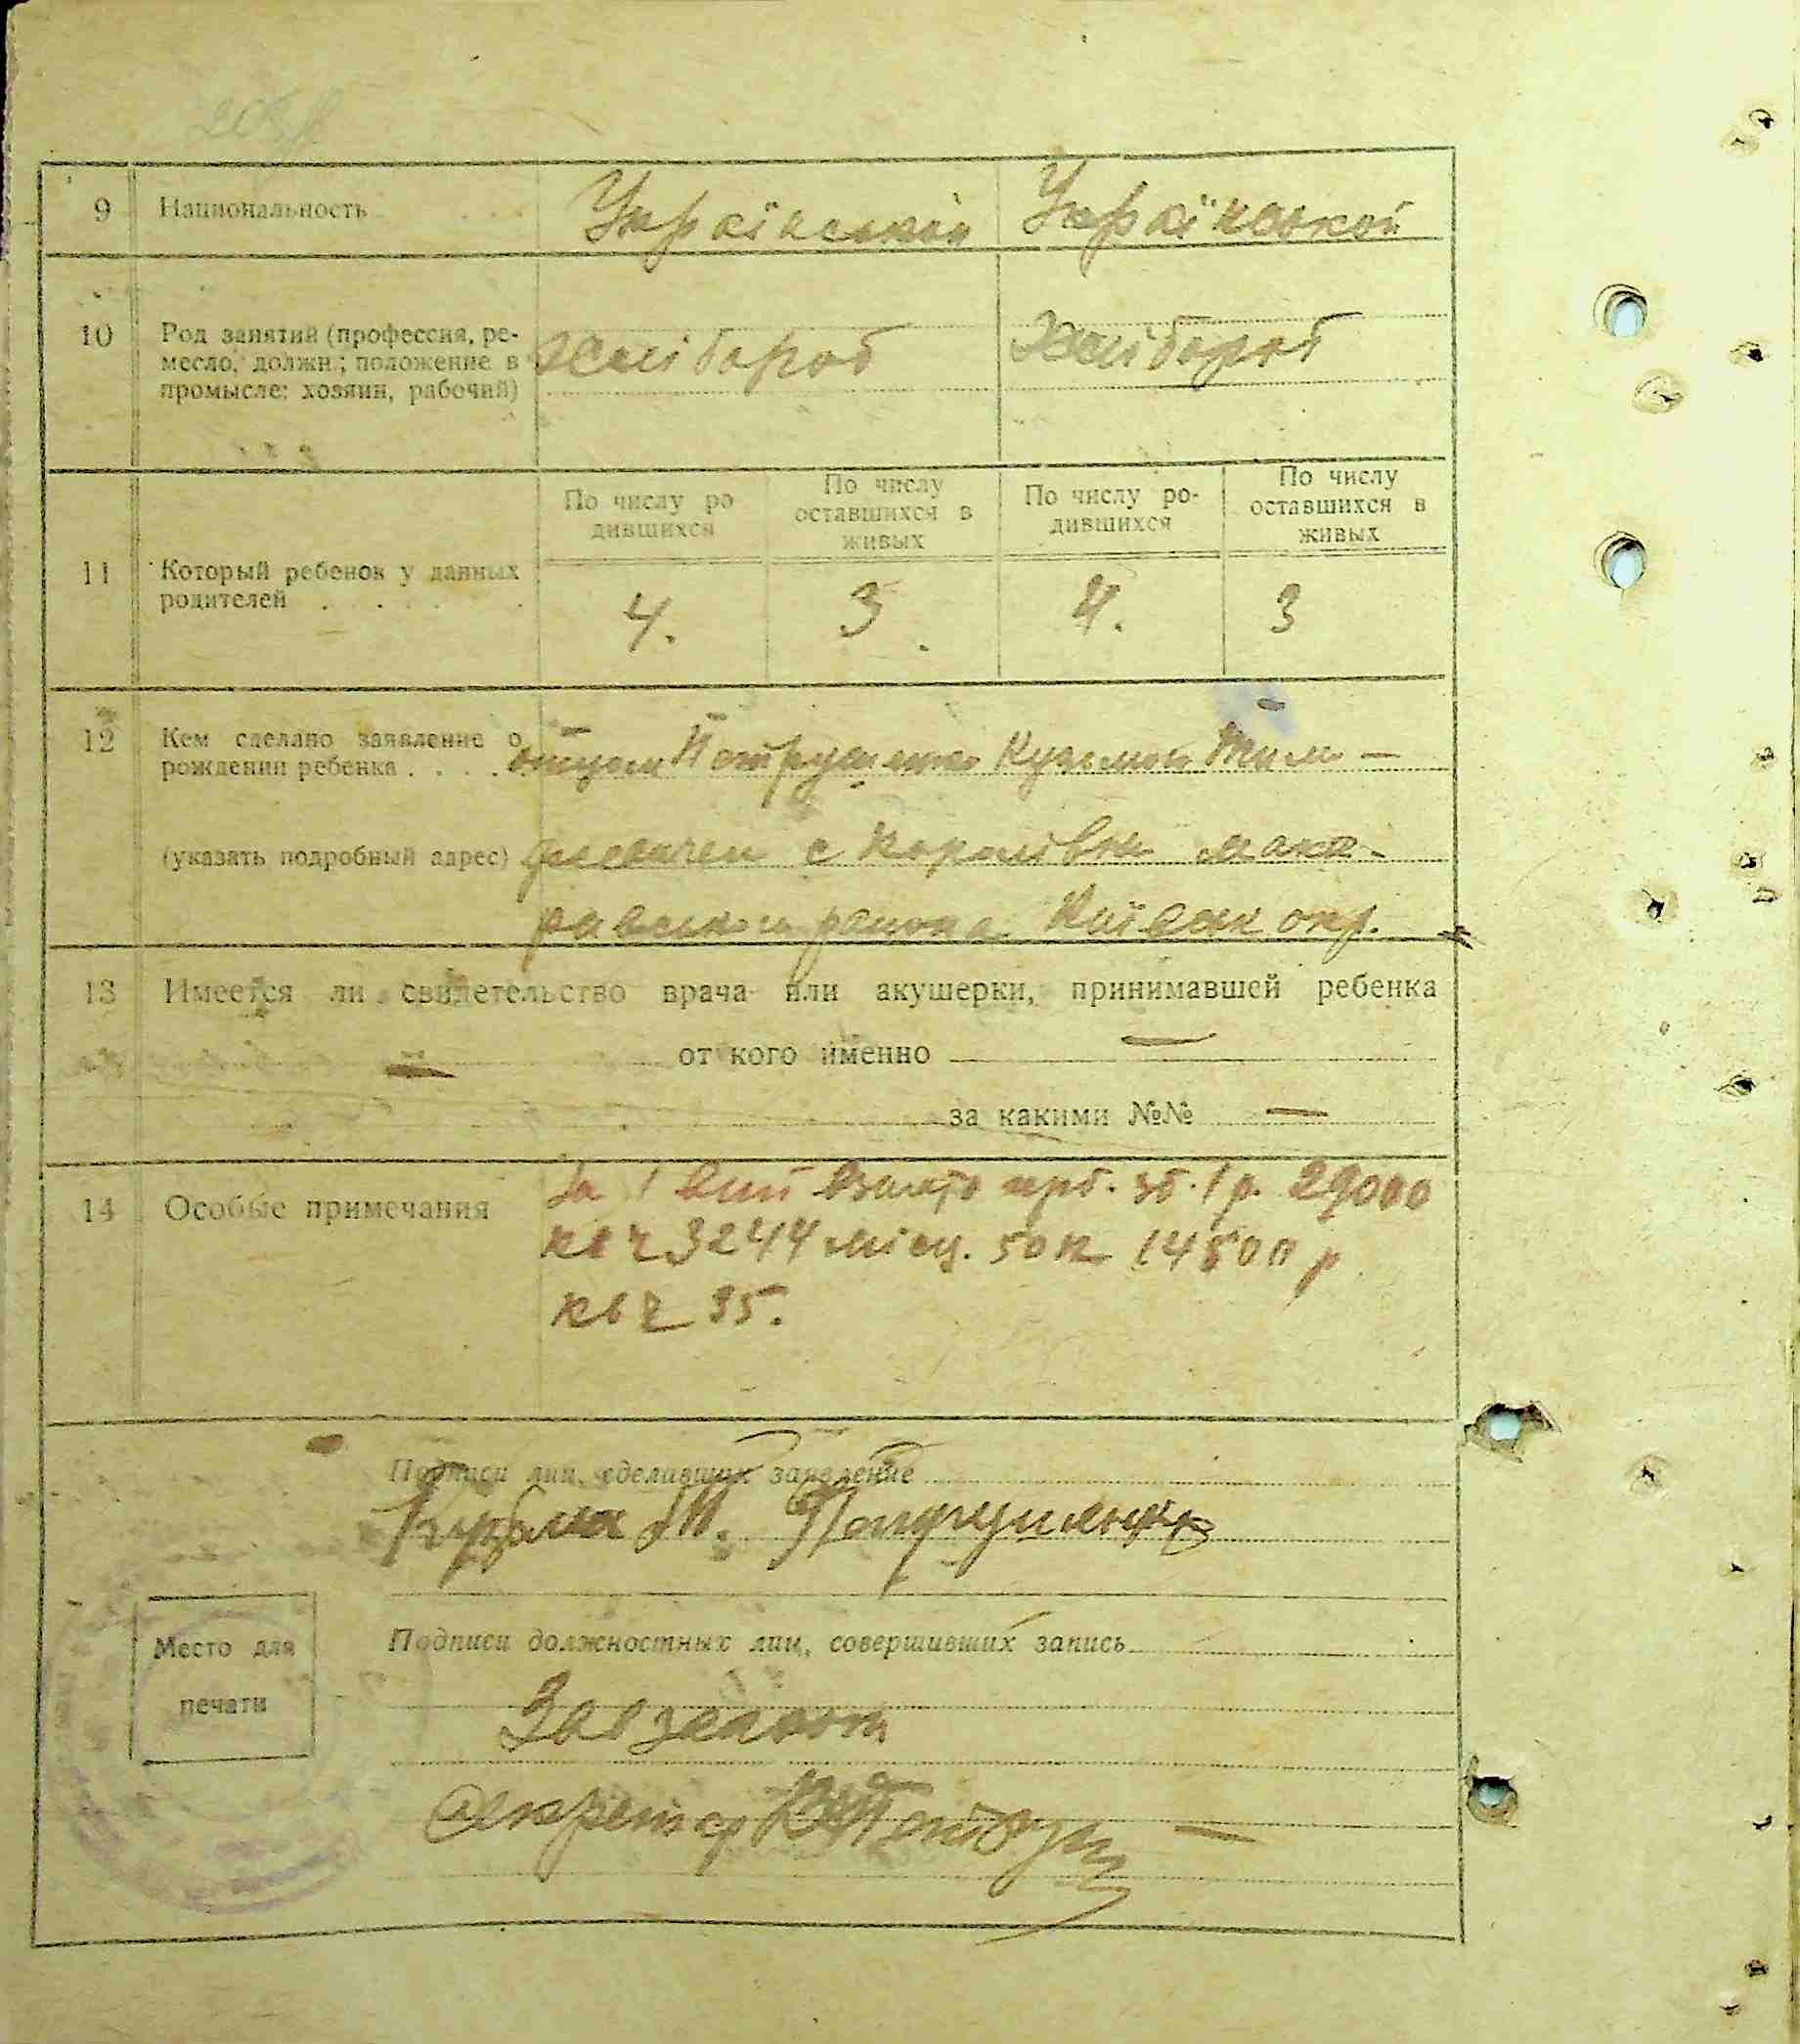 9 Национальность Український Української
10 Род занятий (профессия, ре-
месло, должн.; положение в
промысле: хозяин, рабочий)
хлібороб Хлібороб
11 Который ребенок у данных
родителей
По числу ро
дившихся
По числу
оставшихся в
живых
По числу ро-
дившихся
По числу
оставшихся в
живых
4. 3 4. 3
12 Кем сделано заявление о
рождении ребенка
отцом Кузьмой Тимо-
(указать подробный адрес) с Королівки мака-
района Київськ окр.
13 Имеется ли свидетельство врача или акушерки, принимавшей ребенка
от кого именно —
за какими №№ —
14 Особые примечания
За взлято 1 р. 29000
кв 3244 місц. 50 к 14500 р
кв 35.
Подписи лиц, сделавших заявление
Кузьма
Место для
печати
Подписи должностных лиц, совершивших запись
Секретар